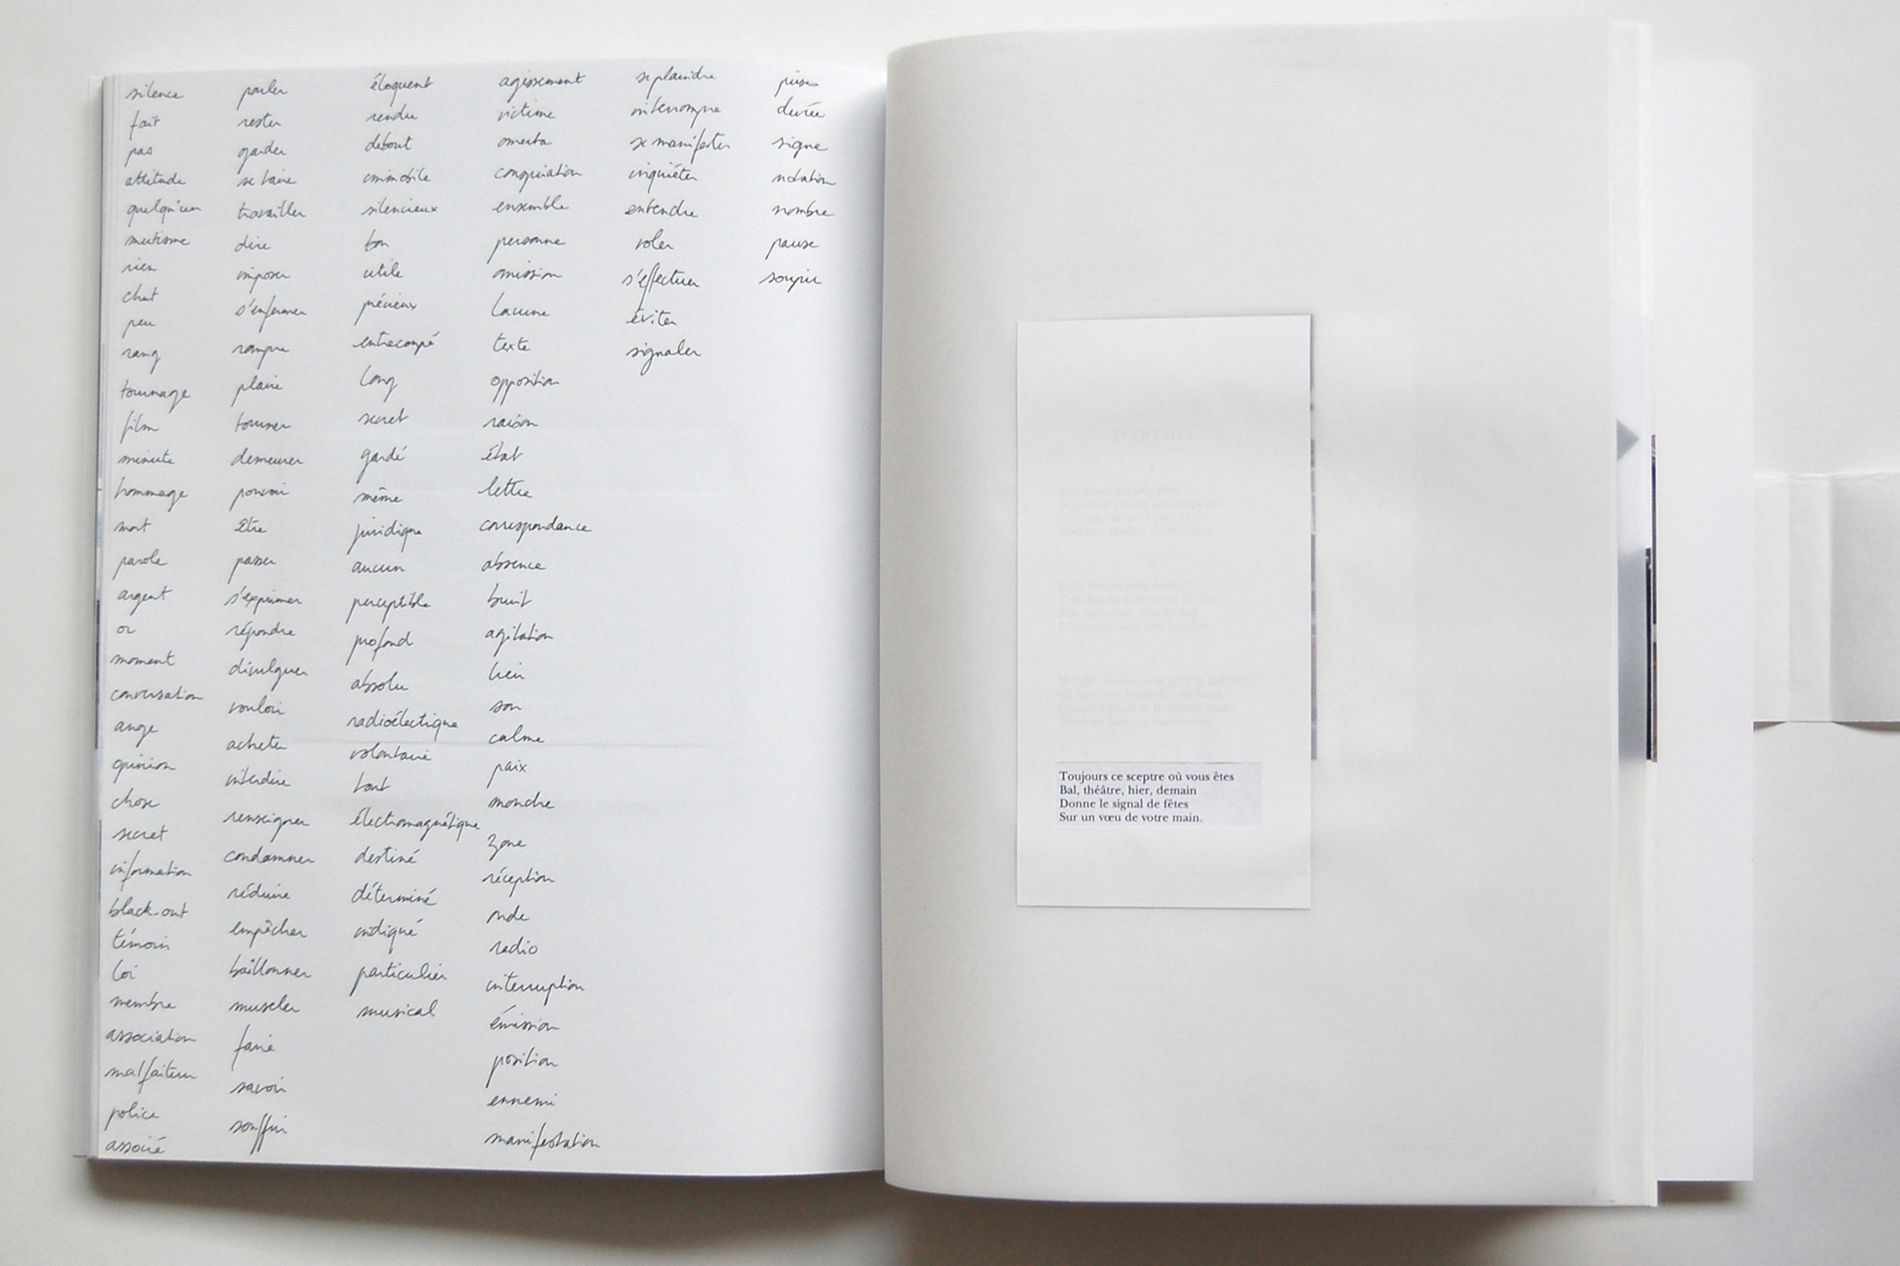 silence
fait
pas
attitude
quelqu'un
mutisme
rien
chut
peu
rang
tournage
film
minute
hommage
mort
parole
argent
or
moment
conversation
ange
opinion
chose
secret
information
black-out
témoin
loi
membre
association
malfaiteur
police
associé
parler
rester
garder
se taire
travailler
dire
imposer
s'enfermer
rompre
plaire
tourner
demeurer
pouvoir
être
passer
s'exprimer
répondre
divulguer
vouloir
acheter
interdire
renseigner
condamner
réduire
empêcher
baîllonner
museler
faire
savoir
souffrir
éloquent
rendu
debout
immobile
silencieux
bon
utile
précieux
entrecoupé
long
secret
gardé
même
juridique
aucun
perceptible
profond
absolu
radioélectrique
volontaire
tout
électromagnétique
destiné
déterminé
indiqué
particulier
musical
agissement
victime
omerta
conspiration
ensemble
personne
omission
lacune
texte
opposition
raison
état
lettre
correspondance
absence
bruit
agitation
lieu
son
calme
paix
monde
zone
réception
onde
radio
interruption
émission
position
ennemi
manifestation
se plaindre
interrompre
se manifester
inquiéter
entendre
voler
s'effectuer
éviter
signaler
durée
signe
notation
nombre
pause
soupir
Toujours ce sceptre où vous êtes
Bal, théâtre, hier, demain
Donne le signal de fêtes
Sur un vœu de votre main.